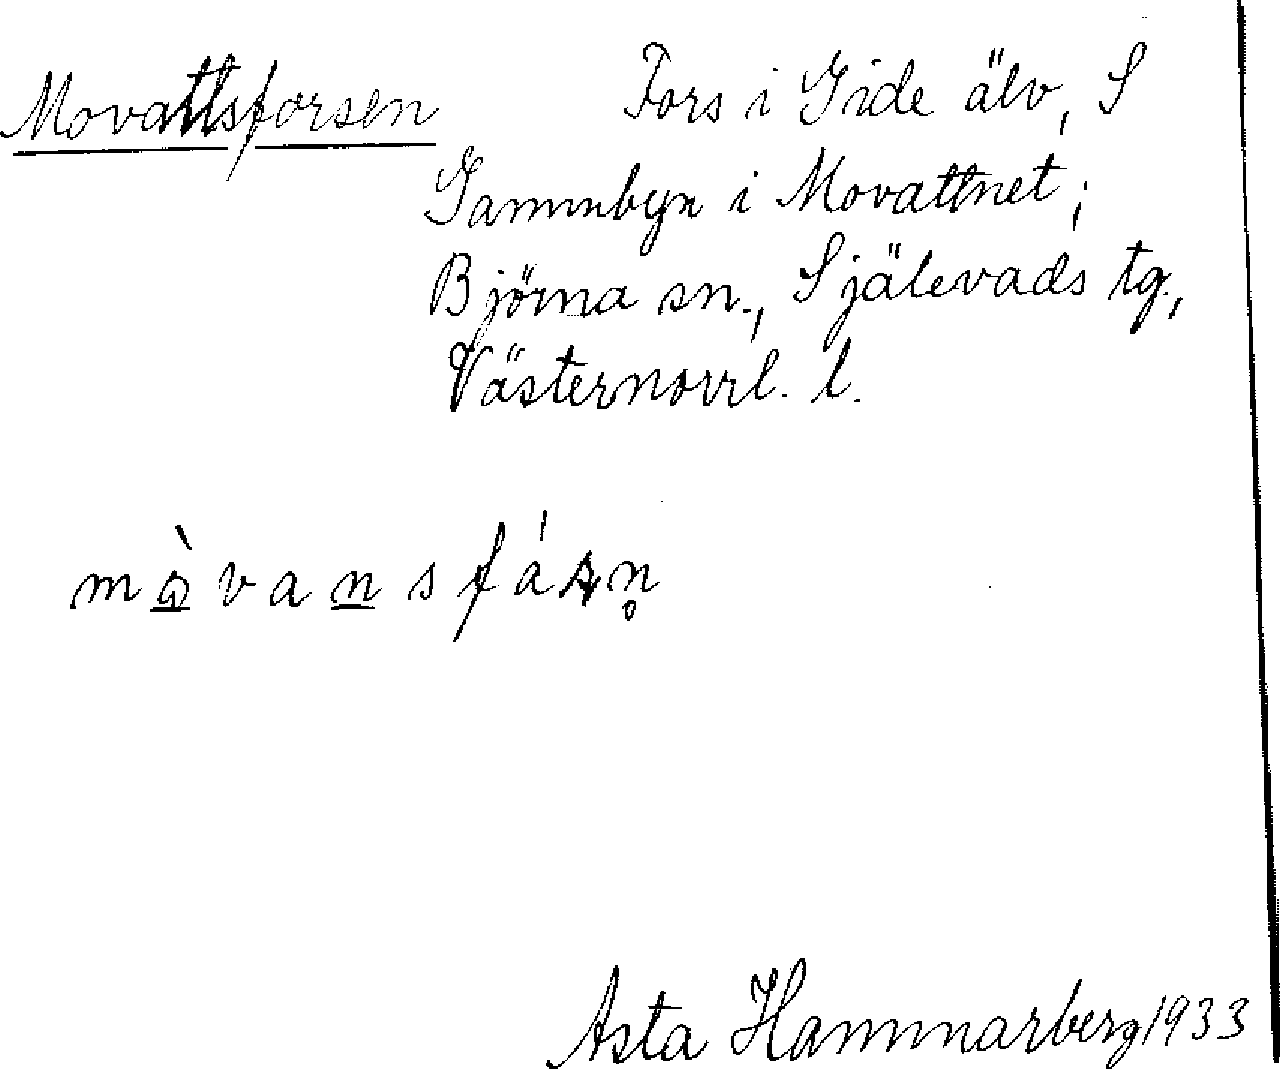 Movattsforsen Fors i Gide älv, S
Gammbyn i Movattnet;
Björna sn., Själevads tg.,
Västernorrl. l.
Asta Hammarberg 1933